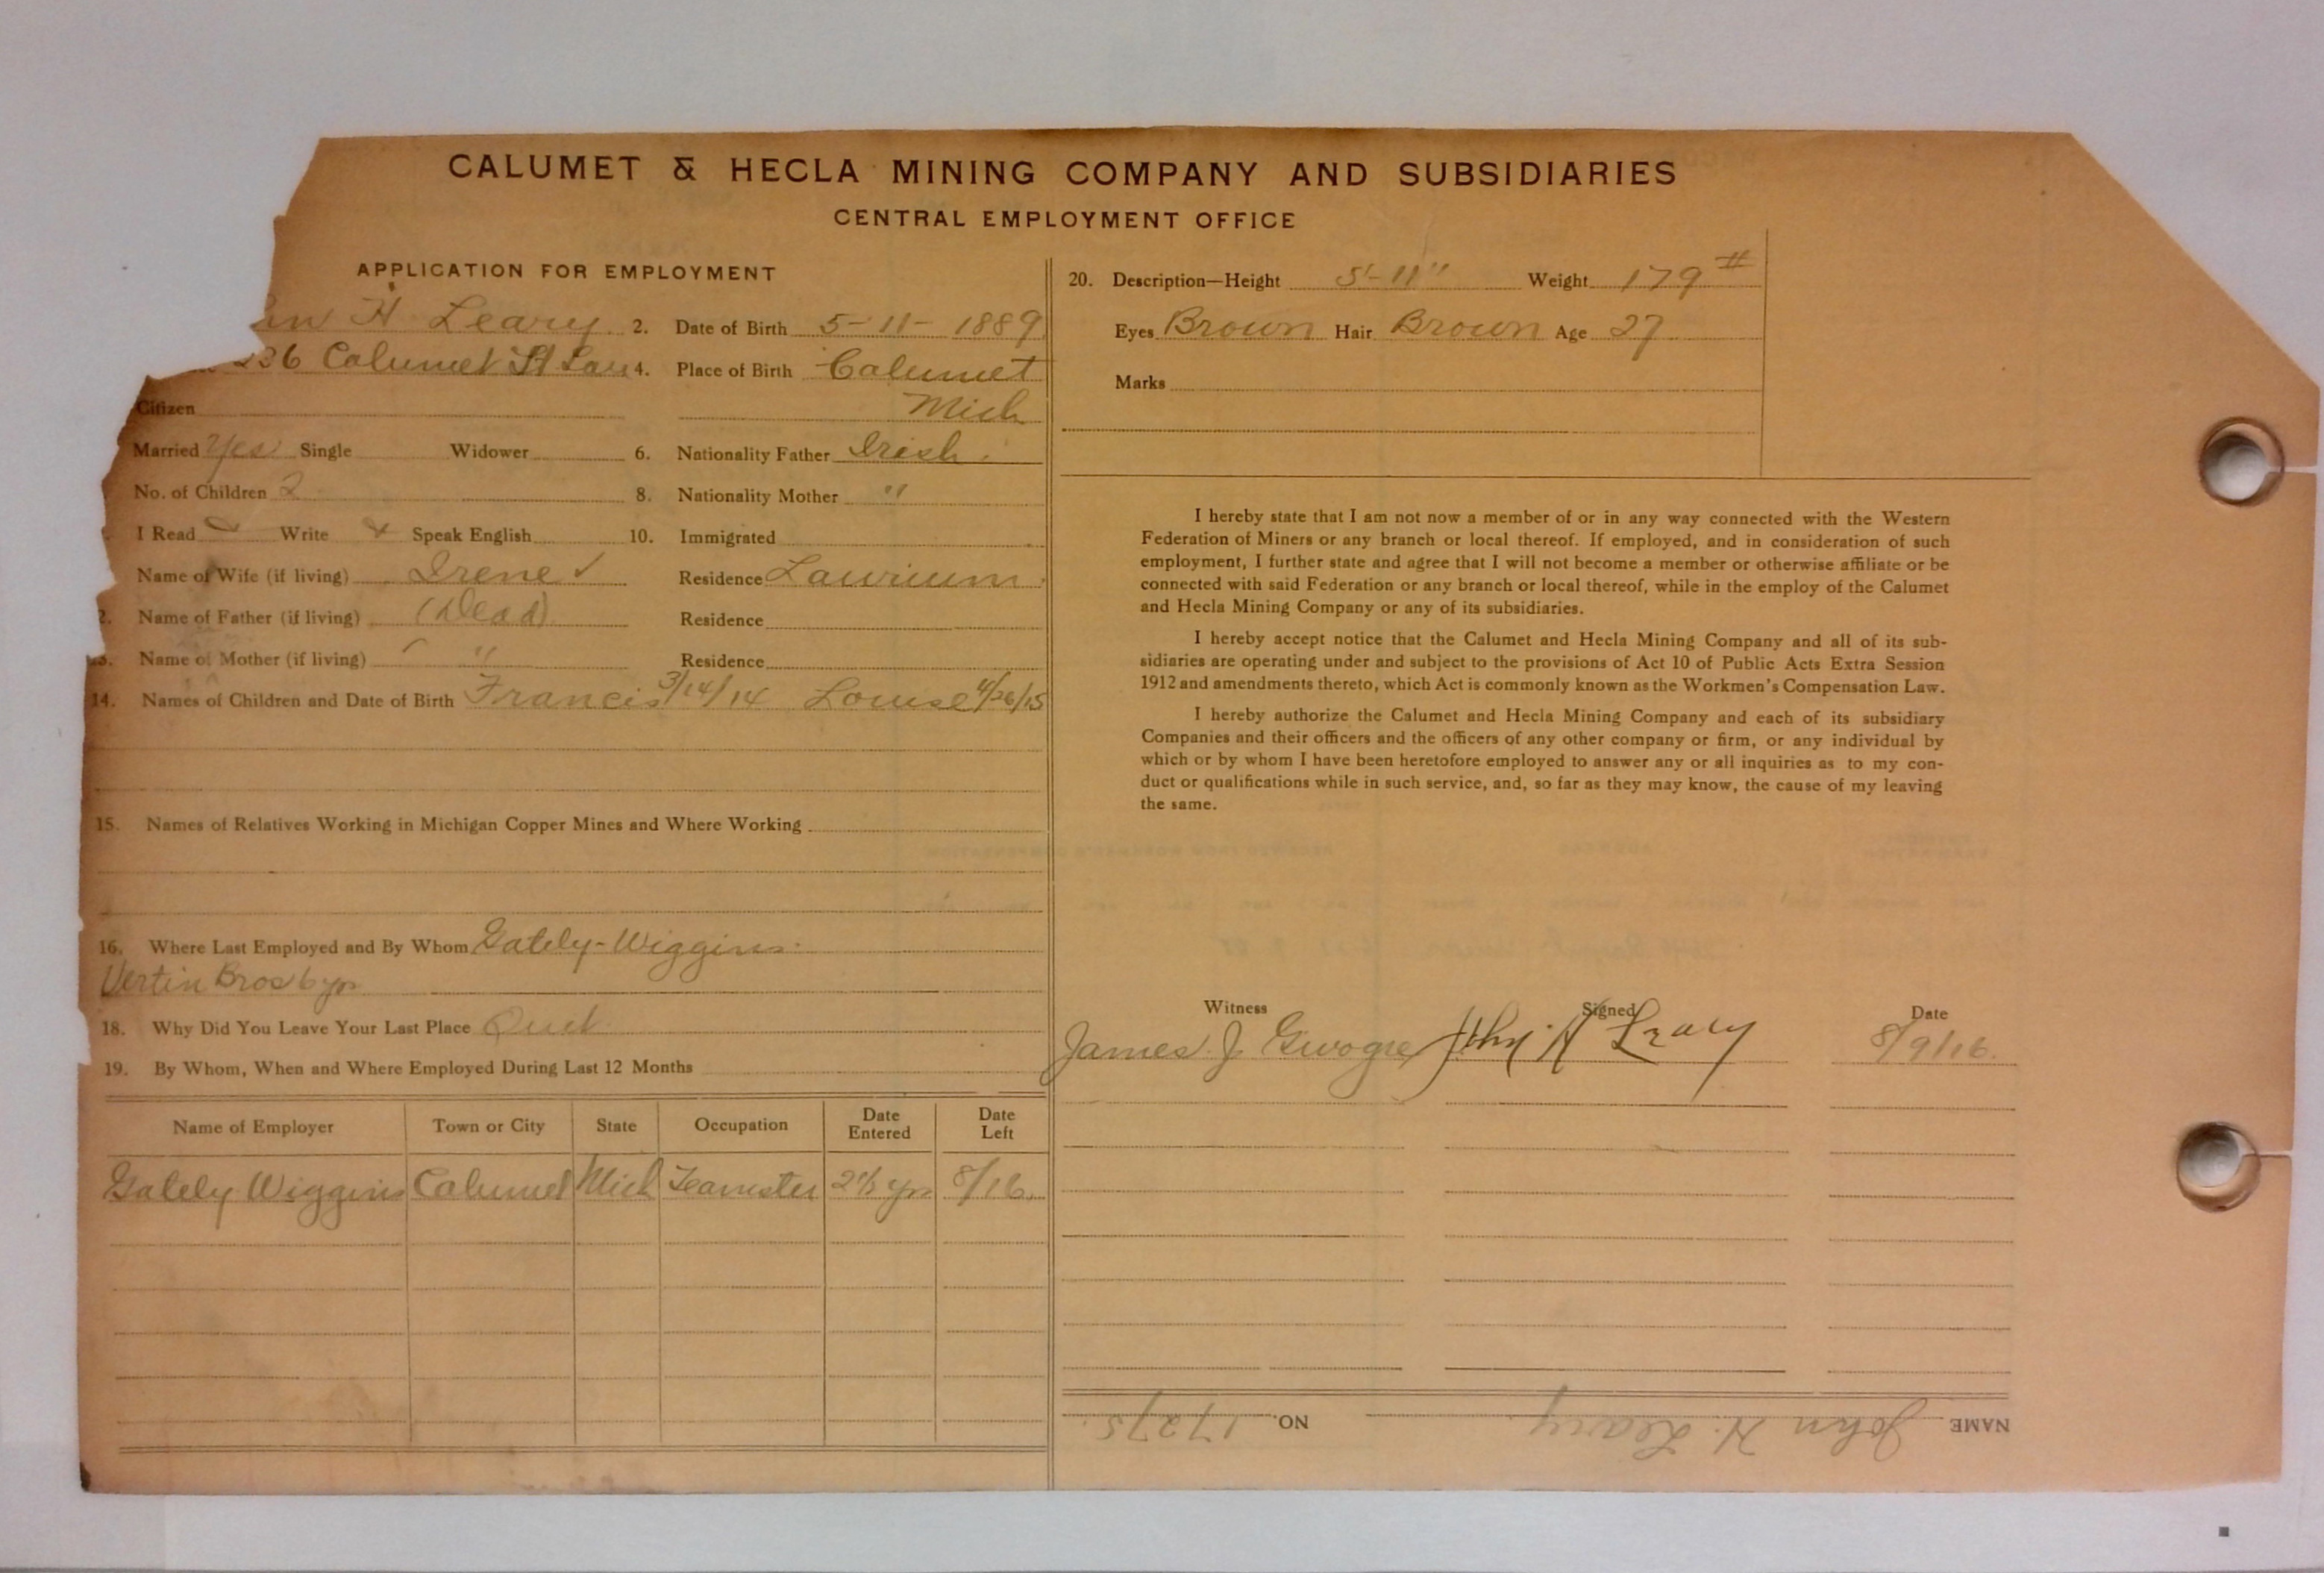 CALUMET & HECLA MINING COMPANY AND SUBSIDIARIES
CENTRAL EMPLOYMENT OFFICE
APPLICATION FOR EMPLOYMENT
H Leary 2. Date of Birth 5-11-1889
236 Calumet St Lau 4. Place of Birth Calumet
Citizen Mich
Married Yes Single Widower 6. Nationality Father Irish
No. of Children 2 8. Nationality Mother "
I Read Write Speak English 10. Immigrated
Name of Wife (if living) Irene ✓ Residence Laurium
2. Name of Father (if living) (Dead) Residence
13. Name of Mother (if living) " Residence
14. Names of Children and Date of Birth Francis 3/14/14 Louise 4/26/15
15. Names of Relatives Working in Michigan Copper Mines and Where Working
16. Where Last Employed and By Whom Gately-Wiggins
Vertin Bros 6 yrs
18. Why Did You Leave Your Last Place Quit
19. By Whom, When and Where Employed During Last 12 Months
Name of Employer Town or City State Occupation Date Entered Date Left
Gately Wiggins Calumet Mich Teamster 2½ yrs 8/16
20. Description—Height 5'-11" Weight 179#
Eyes Brown Hair Brown Age 27
Marks
I hereby state that I am not now a member of or in any way connected with the Western
Federation of Miners or any branch or local thereof. If employed, and in consideration of such
employment, I further state and agree that I will not become a member or otherwise affiliate or be
connected with said Federation or any branch or local thereof, while in the employ of the Calumet
and Hecla Mining Company or any of its subsidiaries.
I hereby accept notice that the Calumet and Hecla Mining Company and all of its sub-
sidiaries are operating under and subject to the provisions of Act 10 of Public Acts Extra Session
1912 and amendments thereto, which Act is commonly known as the Workmen's Compensation Law.
I hereby authorize the Calumet and Hecla Mining Company and each of its subsidiary
Companies and their officers and the officers of any other company or firm, or any individual by
which or by whom I have been heretofore employed to answer any or all inquiries as to my con-
duct or qualifications while in such service, and, so far as they may know, the cause of my leaving
the same.
Witness Signed Date
James J. John H Leary 8/9/16.
NAME John H. Leary NO. 17275.